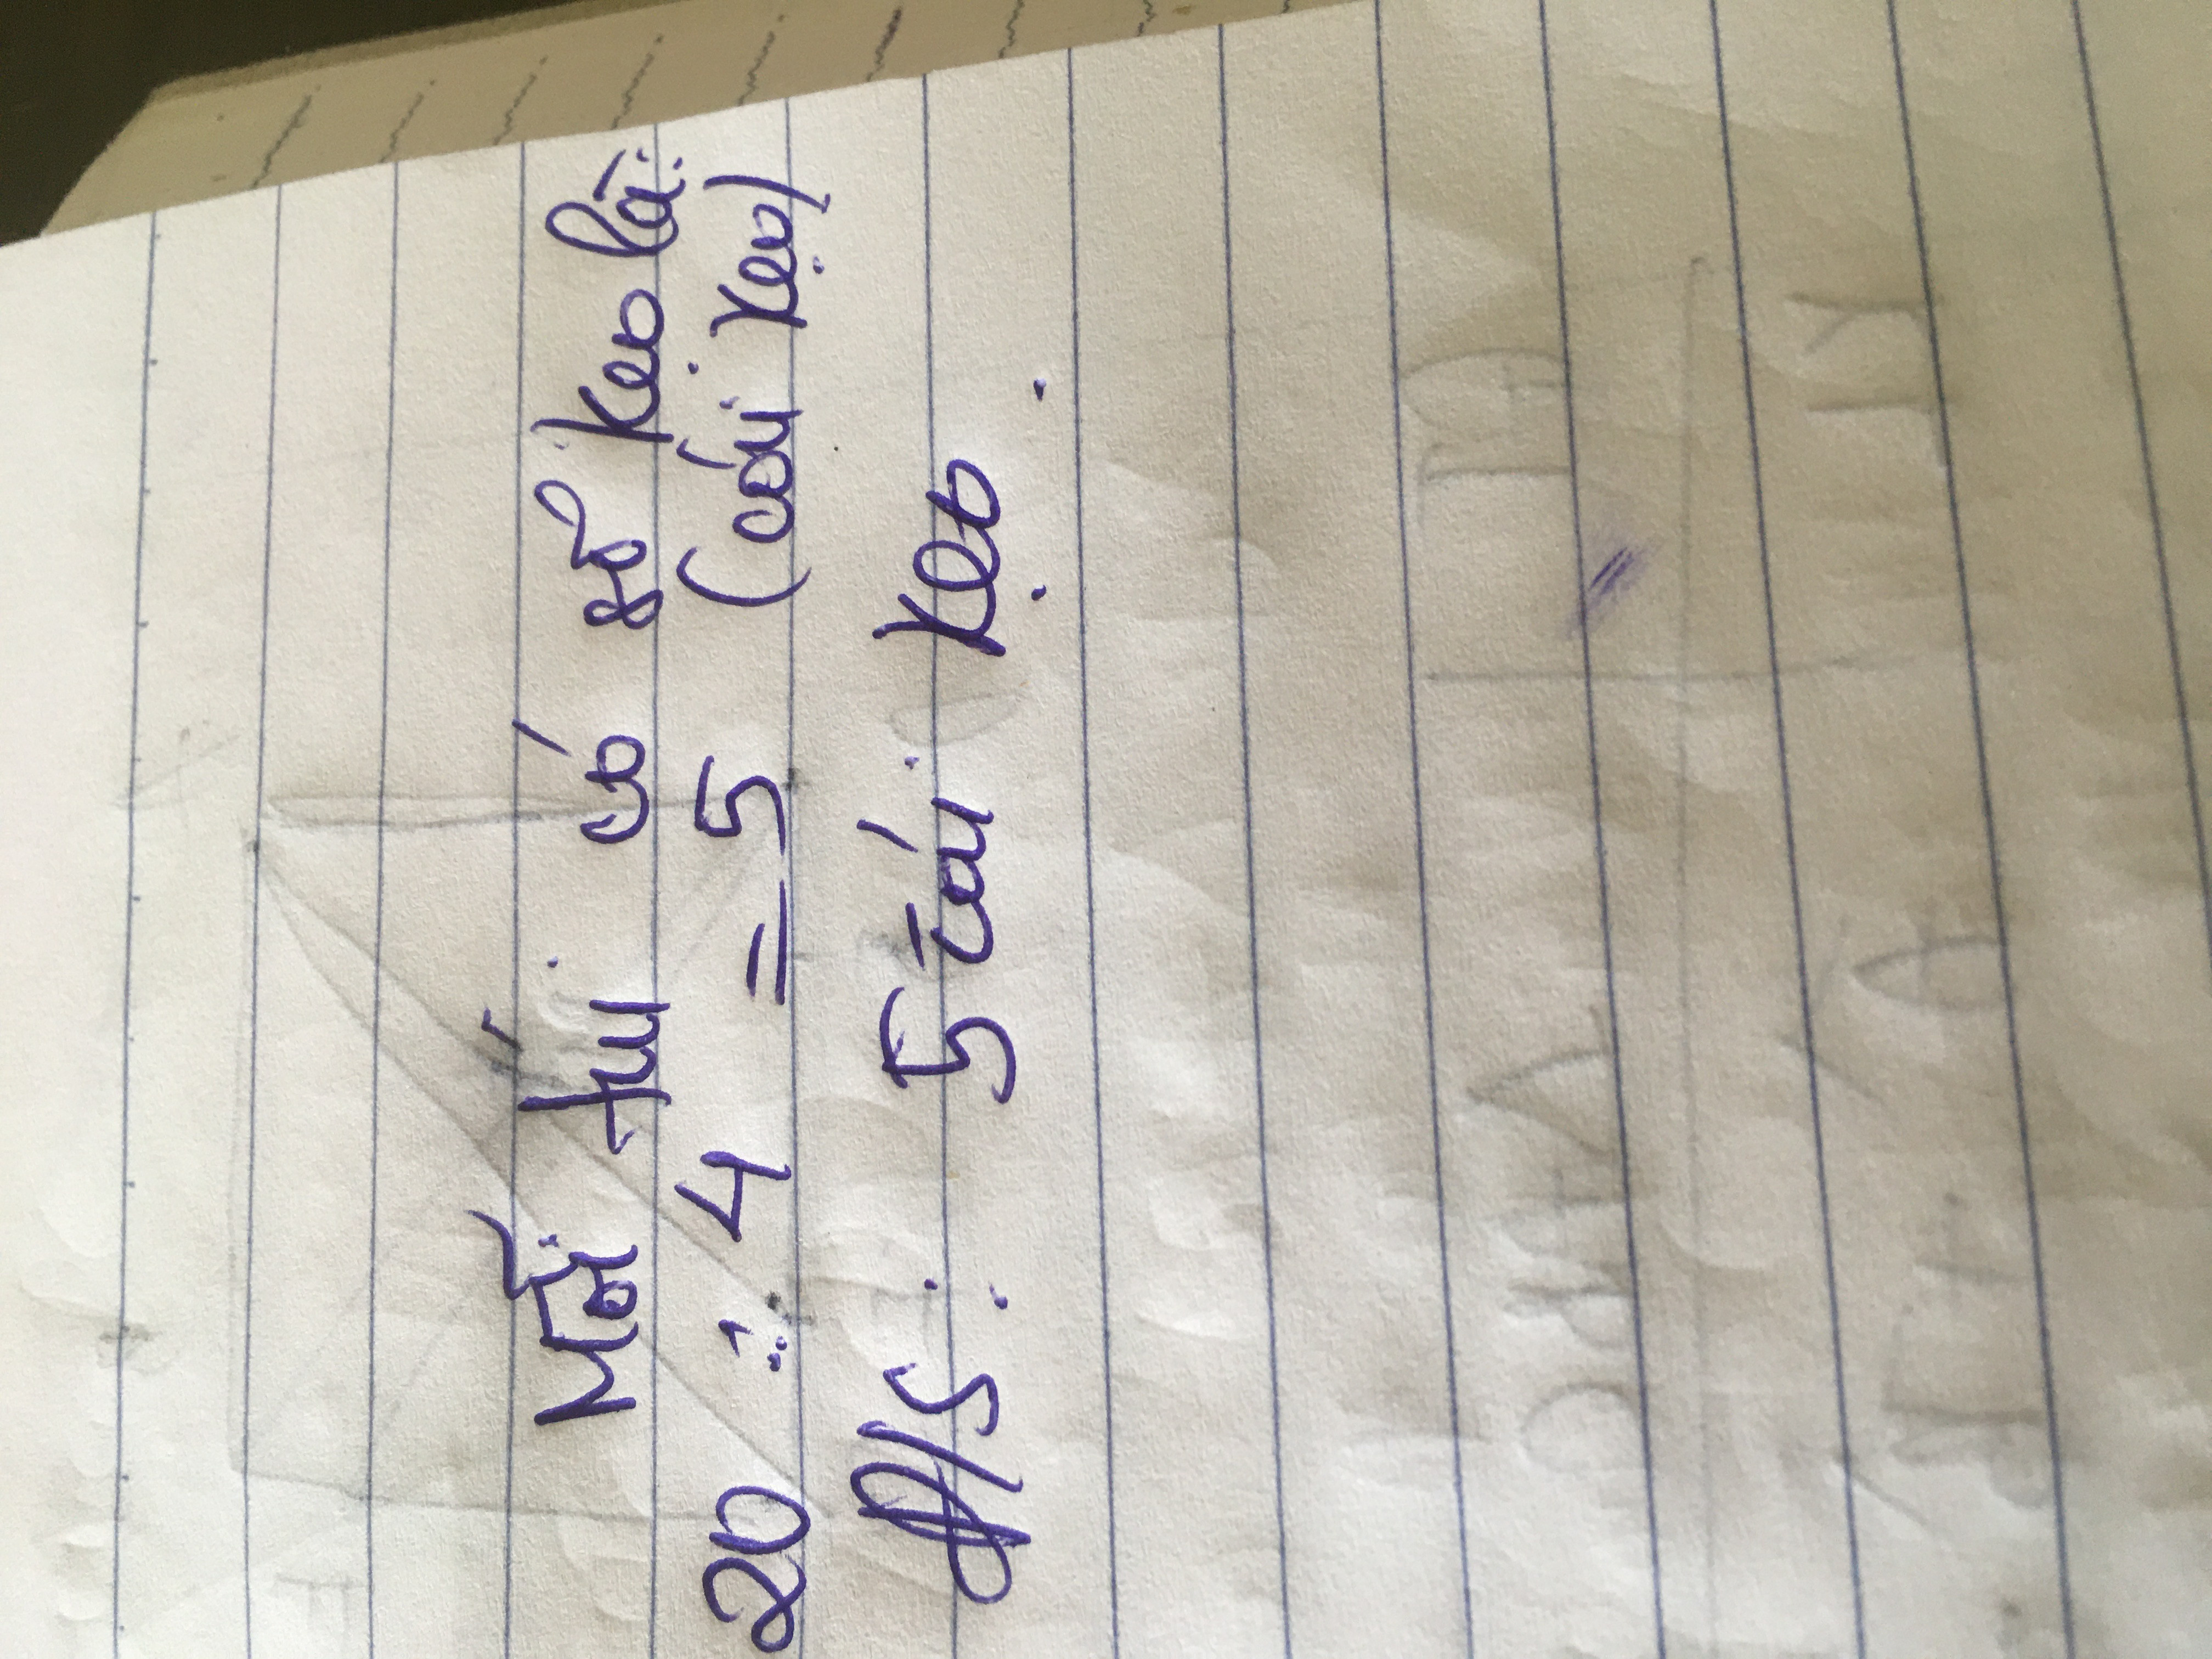 Mỗi túi có số kẹo là:
20 : 4 = 5 (cái kẹo)
Đ/S : 5 cái kẹo.